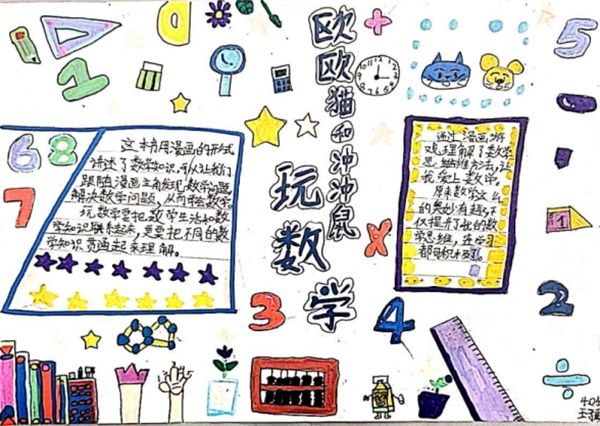 欧欧猫和冲冲鼠
玩数学
这本书用漫画的形式
讲述了数学知识,可以让我们
跟随漫画主角发现数学问题,
解决数学问题,从而学会数学。
玩数学要把数学生活和数
学知识联系起来,更要把不同的数
学知识贯通起来理解。
通过漫画游
戏理解了数学
思维方法,让
我爱上数学。
原来数学这么
的奥妙有趣,不
仅提升了我的数
学思维,在学习
都有积木
1
5
6 8
7
1
x
2
3
4